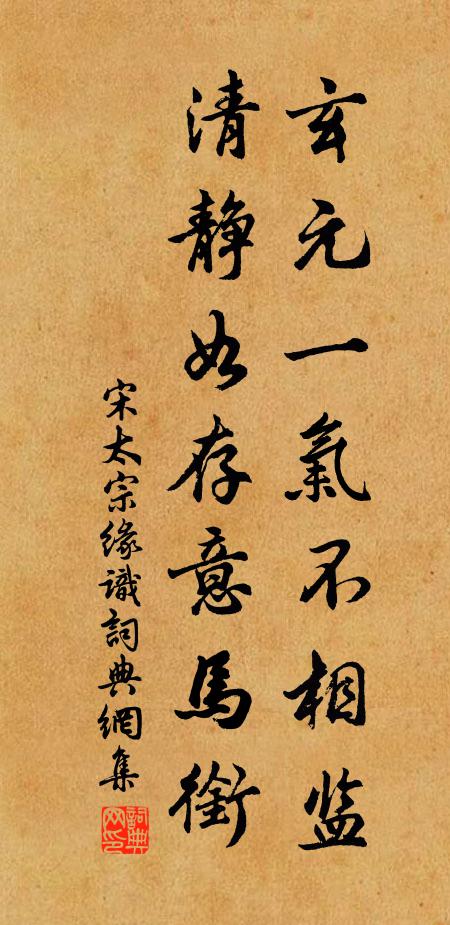 玄元一氣不相监
清静如存意馬銜
宋太宗緣識詞典網集
詞典网印